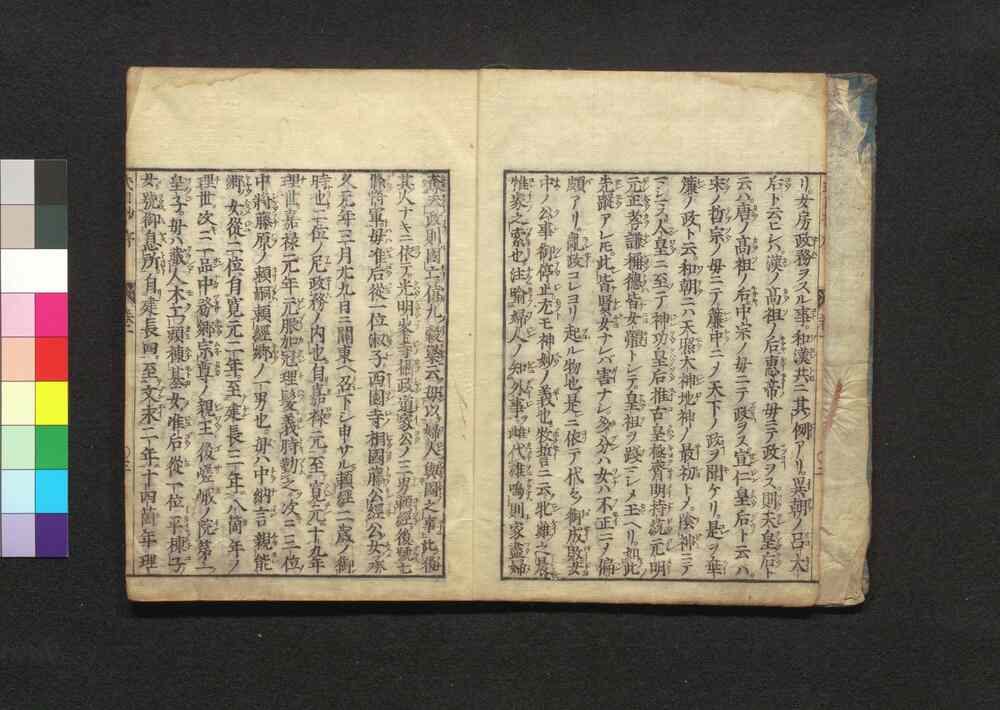 リ女房政務ヲスル事和漢共ニ其例アリ異朝ノ呂太
后ト云ヒシハ漢ノ高祖ノ后惠帝ノ母ニテ政ヲス則天皇后ト
云ハ唐ノ高祖ノ后中宗ノ母ニテ政ヲス宣仁皇后ト云ハ
宋ノ哲宗ノ母ニテ簾中ニノ天下ノ政ヲ聞ケリ是ヲ垂
簾ノ政ト云和朝ニハ天照太神地神ノ最初トノ陰神ニテ
マシマス人皇ニ至テ神功皇后推古皇極齊明持統元明
元正孝謙稱德皆女體トシテ皇祖ヲ踐シメ王ヘリ如此
先蹤アレ𪜈此皆賢女ナレバ害ナシ多分ハ女ハ不正ニノ偏
頗アリ亂政コレヨリ起ル物也是ニ依テ代々ノ御成敗女
中ノ公事御停止尤モ神妙ノ義也牧誓ニ云牝雞之晨
惟家之索也注喻婦人ノ知外事雌代雄鳴則家盡婦
奪夫政則國亡僖九穀梁云毋以婦人與國之事此後
其人ナキニ依テ光明峯寺攝政道家公ノ三男賴經後號七
條將軍母准后從一位淑子西園寺相國藤公經公女承
久元年三月九日ニ關東ヘ召下シ申サル賴經二歲ノ御
時也二位ノ尼政務ノ内也自嘉祿元至寬元十九年
理世嘉祿二元年元服加冠理髮義時勤之次ニ三位
中將藤原ノ賴嗣賴經鄉ノ一男也母ハ中納言親能
鄉ノ女從二位自寬元二年至建長三年八箇年ノ
理世次ニ一品中務鄉宗尊ノ親王後嵯峨ノ院第二
皇子母ハ藏人木工頭棟基女准后從一位平棟子
女號御息所自建長四至文永二年十四箇年理